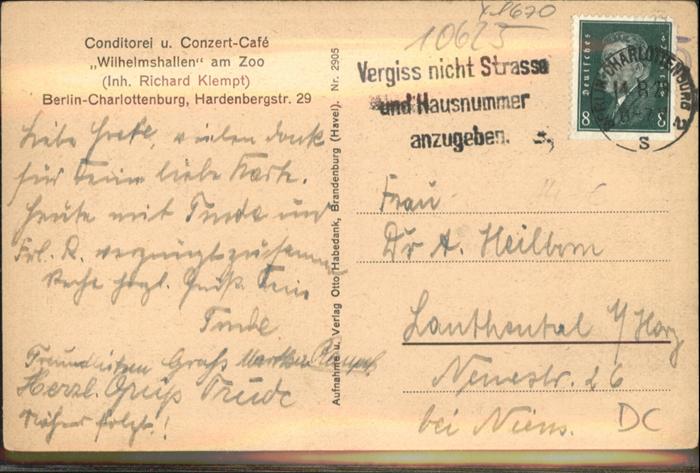 Conditorei u. Conzert-Café
„Wilhelmshallen" am Zoo
(Inh. Richard Klempt)
Berlin-Charlottenburg, Hardenbergstr. 29
Liebe Grete, vielen Dank
für Deine liebe Karte.
Heute mit Trude und
Frl. R. vergnügt zusammen
herzl. Grüße Deine
Trude
Freundlichen Gruß
Herzl. Gruß Trude
Näheres folgt!
Aufnahme u. Verlag Otto Habedank, Brandenburg (Havel). Nr. 2905
10625
Vergiss nicht Strasse
und Hausnummer
anzugeben.
Deutsches
8 8
BERLIN-CHARLOTTENBURG 2
S
Frau
Dr A. Heilborn
Lauthental i/Harz
Neuestr. 26
bei Niens.
DC